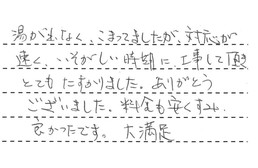 湯がでなく、こまってましたが、対応が
速く、いそがしい時期に工事して頂き
とてもたすかりました。ありがとう
ございました。料金も安くすみ
良かったです。大満足